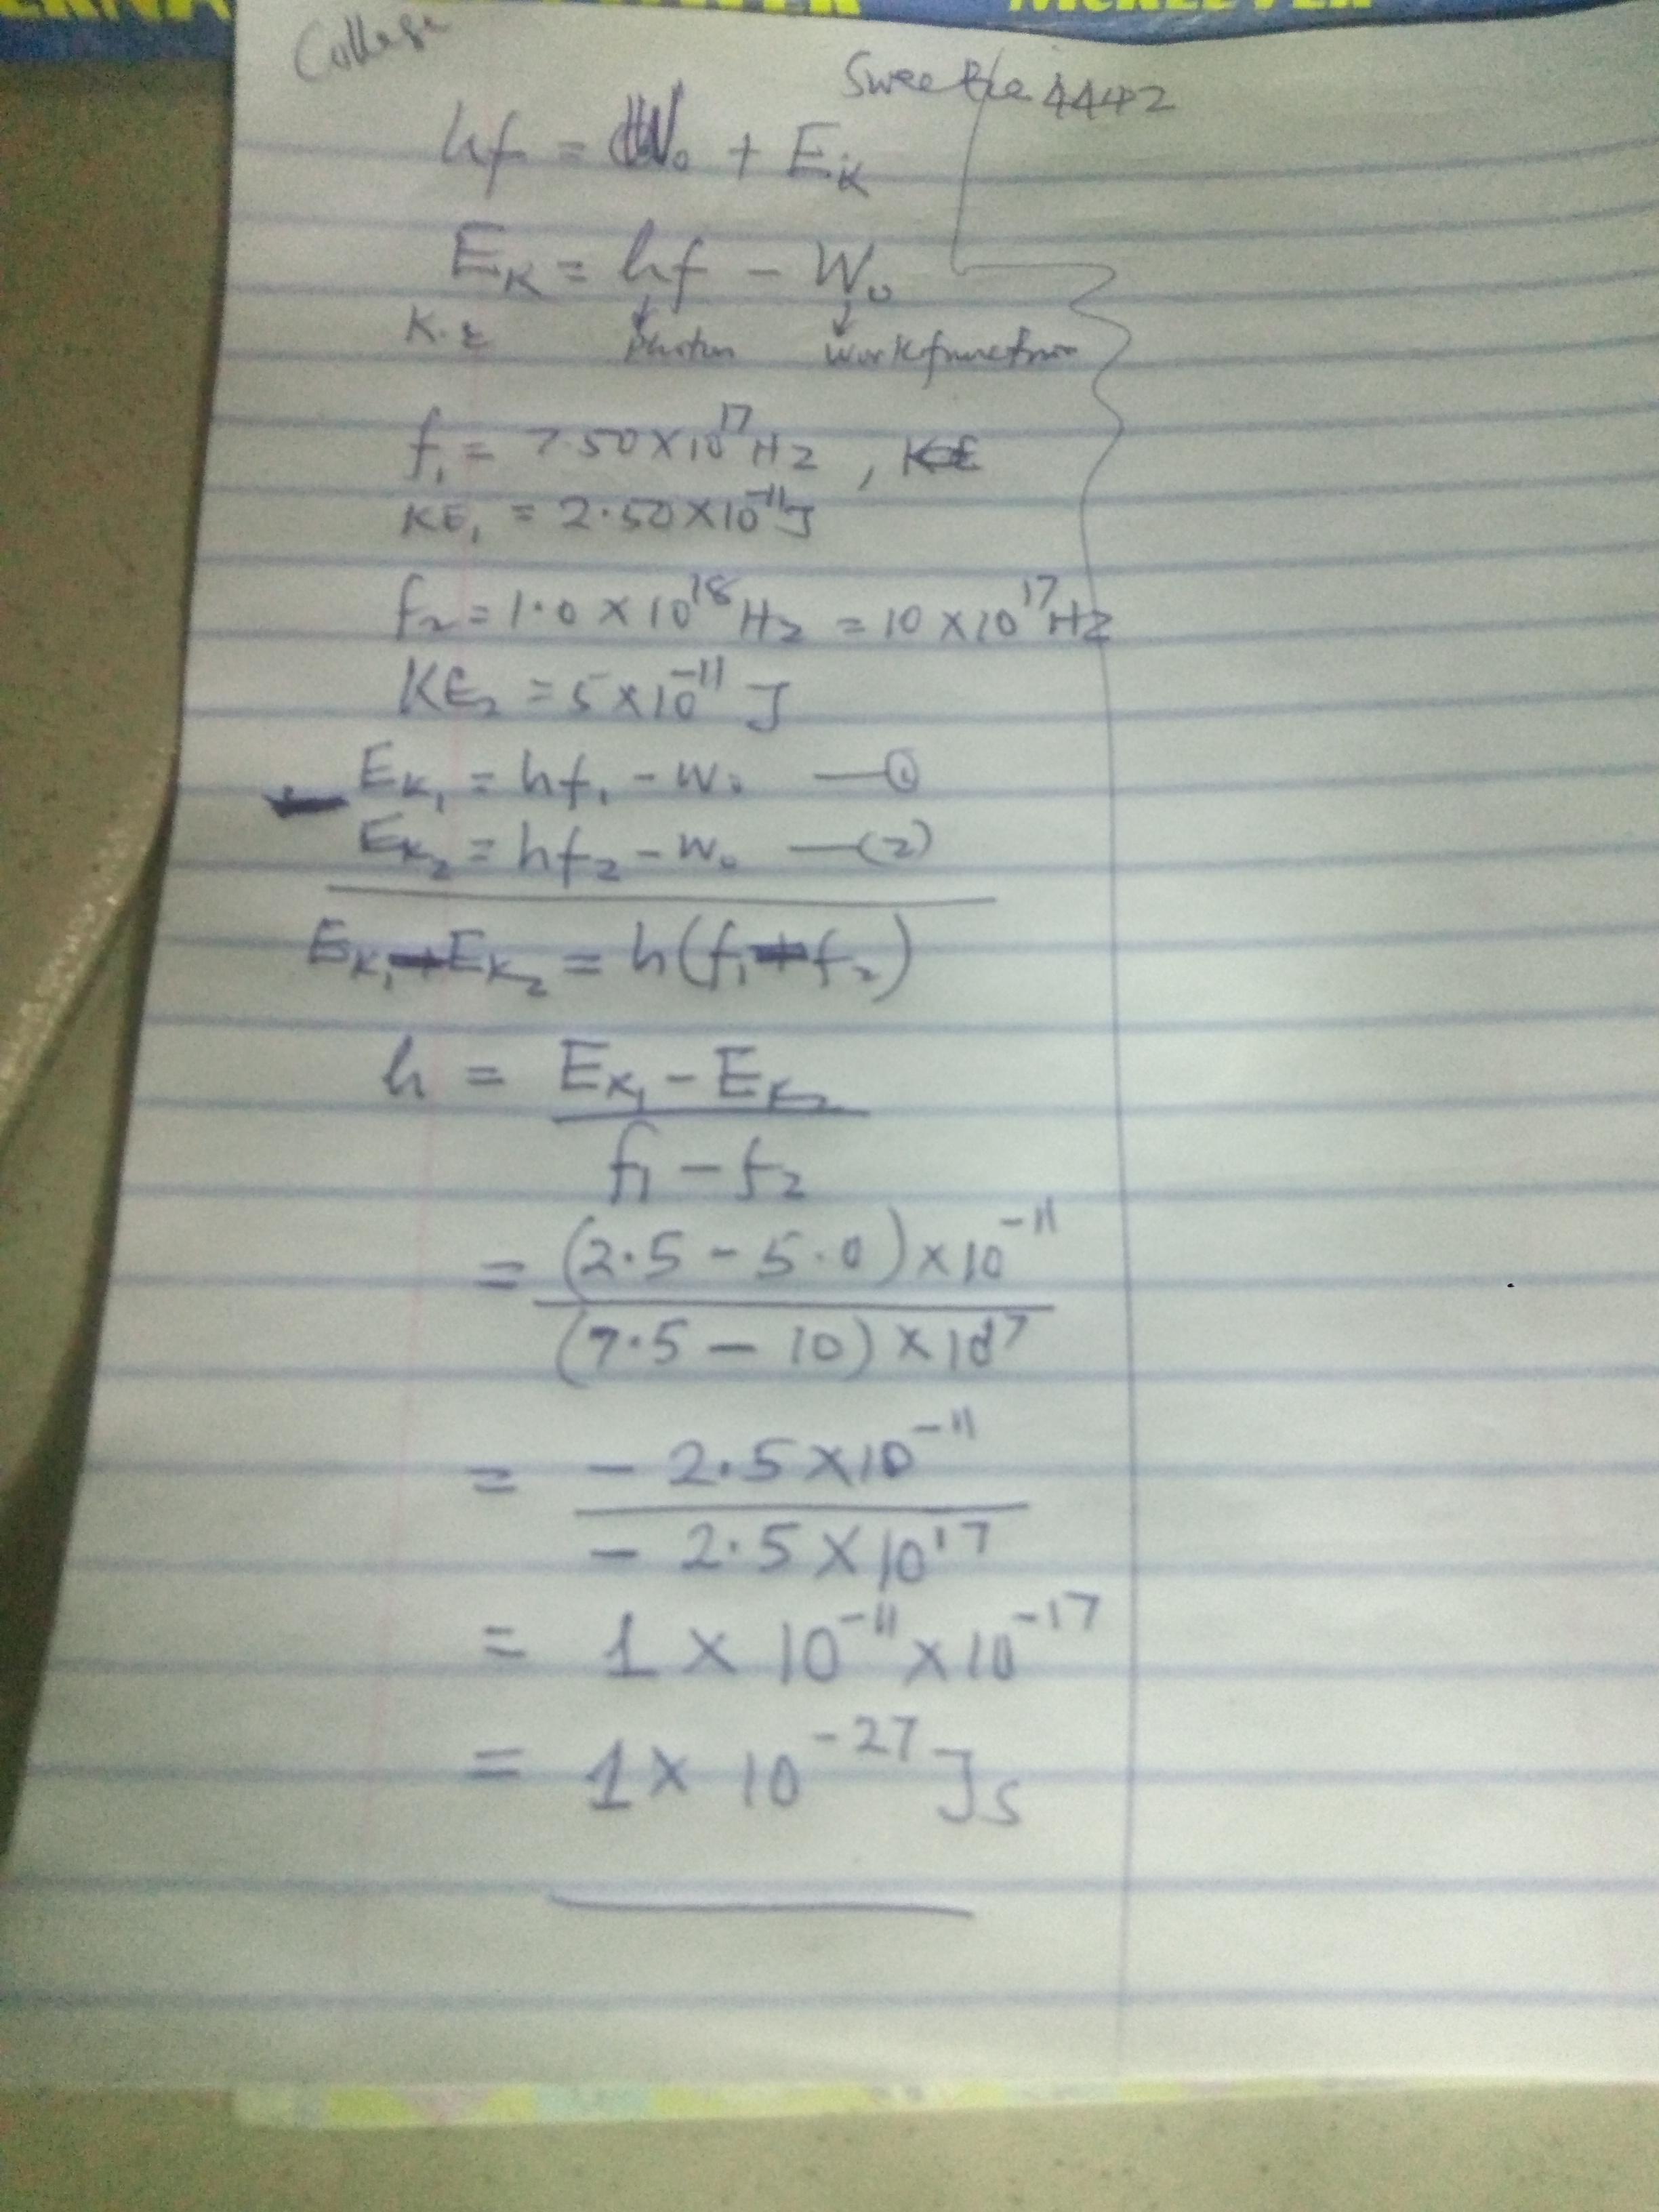 College
Sweetie 4442
hf = W₀ + Eₖ
Eₖ = hf - W₀
K.E photon work function
f₁ = 7.50 × 10¹⁷ Hz , KE
KE₁ = 2.50 × 10⁻¹¹ J
f₂ = 1.0 × 10¹⁸ Hz = 10 × 10¹⁷ Hz
KE₂ = 5 × 10⁻¹¹ J
Eₖ₁ = hf₁ - W₀ —(1)
- Eₖ₂ = hf₂ - W₀ —(2)
Eₖ₁ - Eₖ₂ = h(f₁ - f₂)
h = Eₖ₁ - Eₖ₂
f₁ - f₂
= (2.5 - 5.0) × 10⁻¹¹
(7.5 - 10) × 10¹⁷
= - 2.5 × 10⁻¹¹
- 2.5 × 10¹⁷
= 1 × 10⁻¹¹ × 10⁻¹⁷
= 1 × 10⁻²⁷ Js